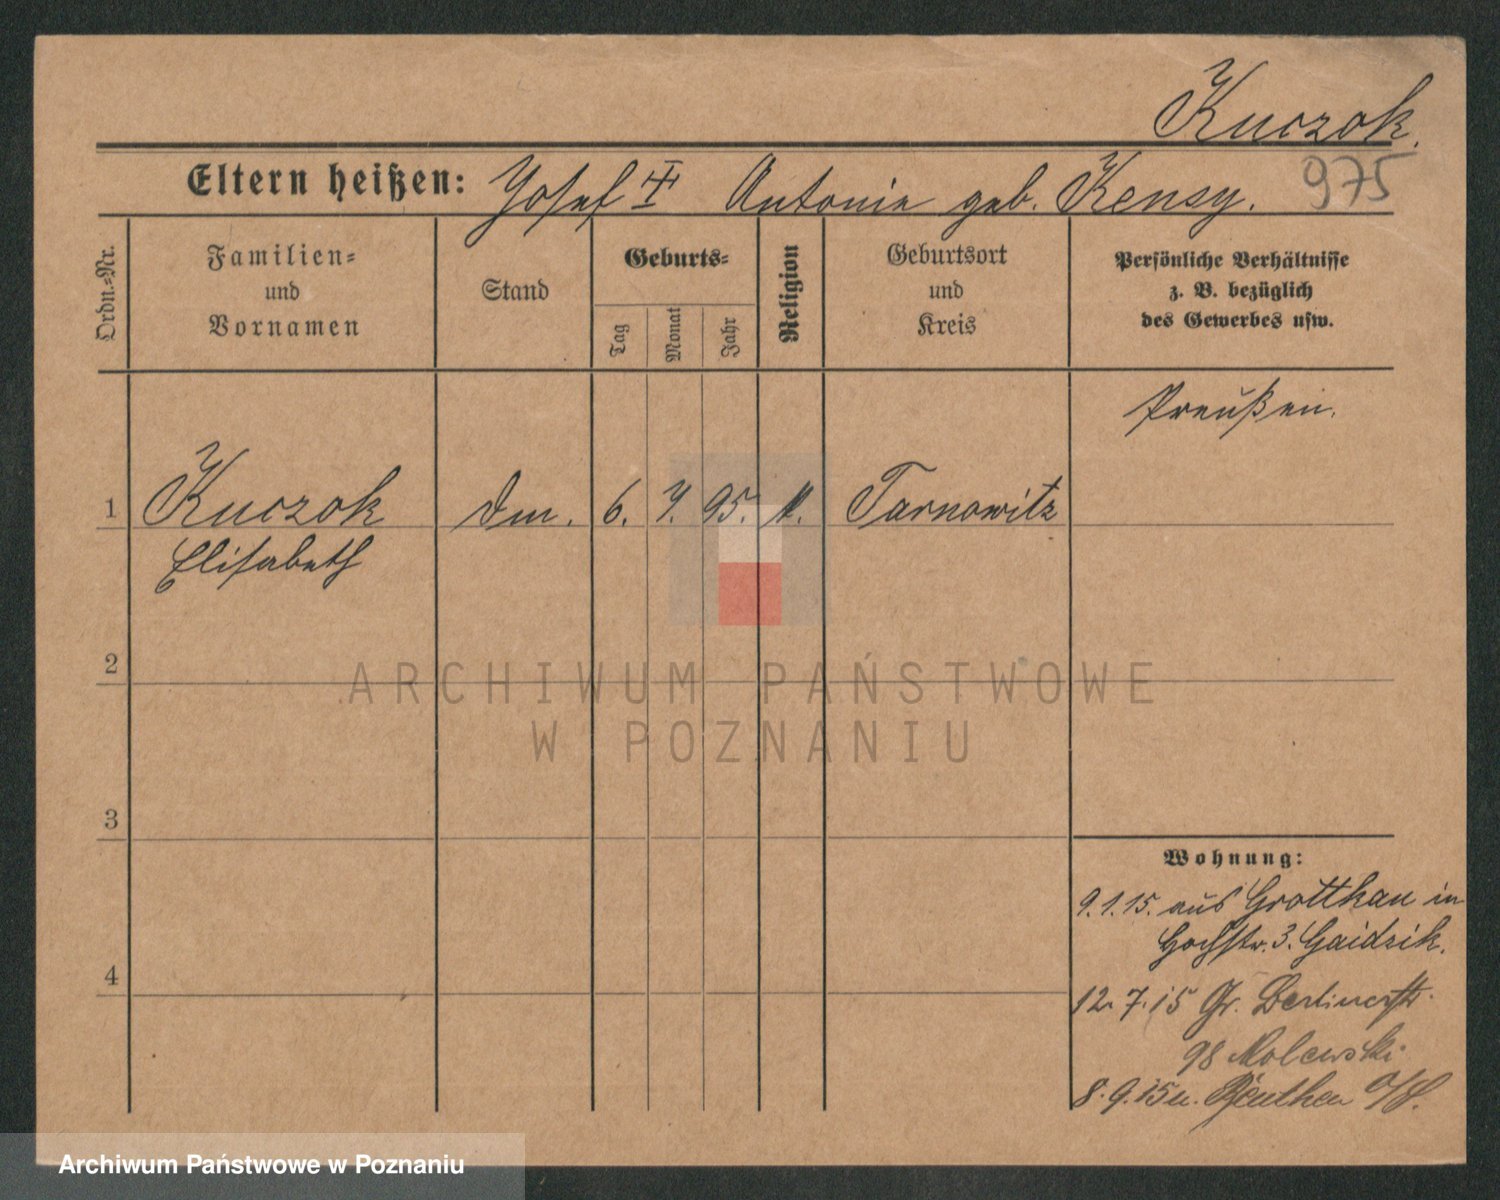 Kuczok.
Eltern heißen: Josef Antonie geb. Kensy. 975
Ordn.=Nr.
Familien=
und
Vornamen
Stand
Geburts=
Tag
Monat
Jahr
Religion
Geburtsort
und
Kreis
Persönliche Verhältnisse
z. B. bezüglich
des Gewerbes usw.
Preußen.
1 Kuczok 6. 7. 95. k. Tarnowitz
Elisabeth
2
3
4
Wohnung:
9.1.15. aus Grottkau in
Hochstr. 3. Gaidzik.
12.7.15 Gr. Berlinerstr.
98 Molewski.
8.9.15 n. Beuthen O/S.
ARCHIWUM PAŃSTWOWE
W POZNANIU
Archiwum Państwowe w Poznaniu